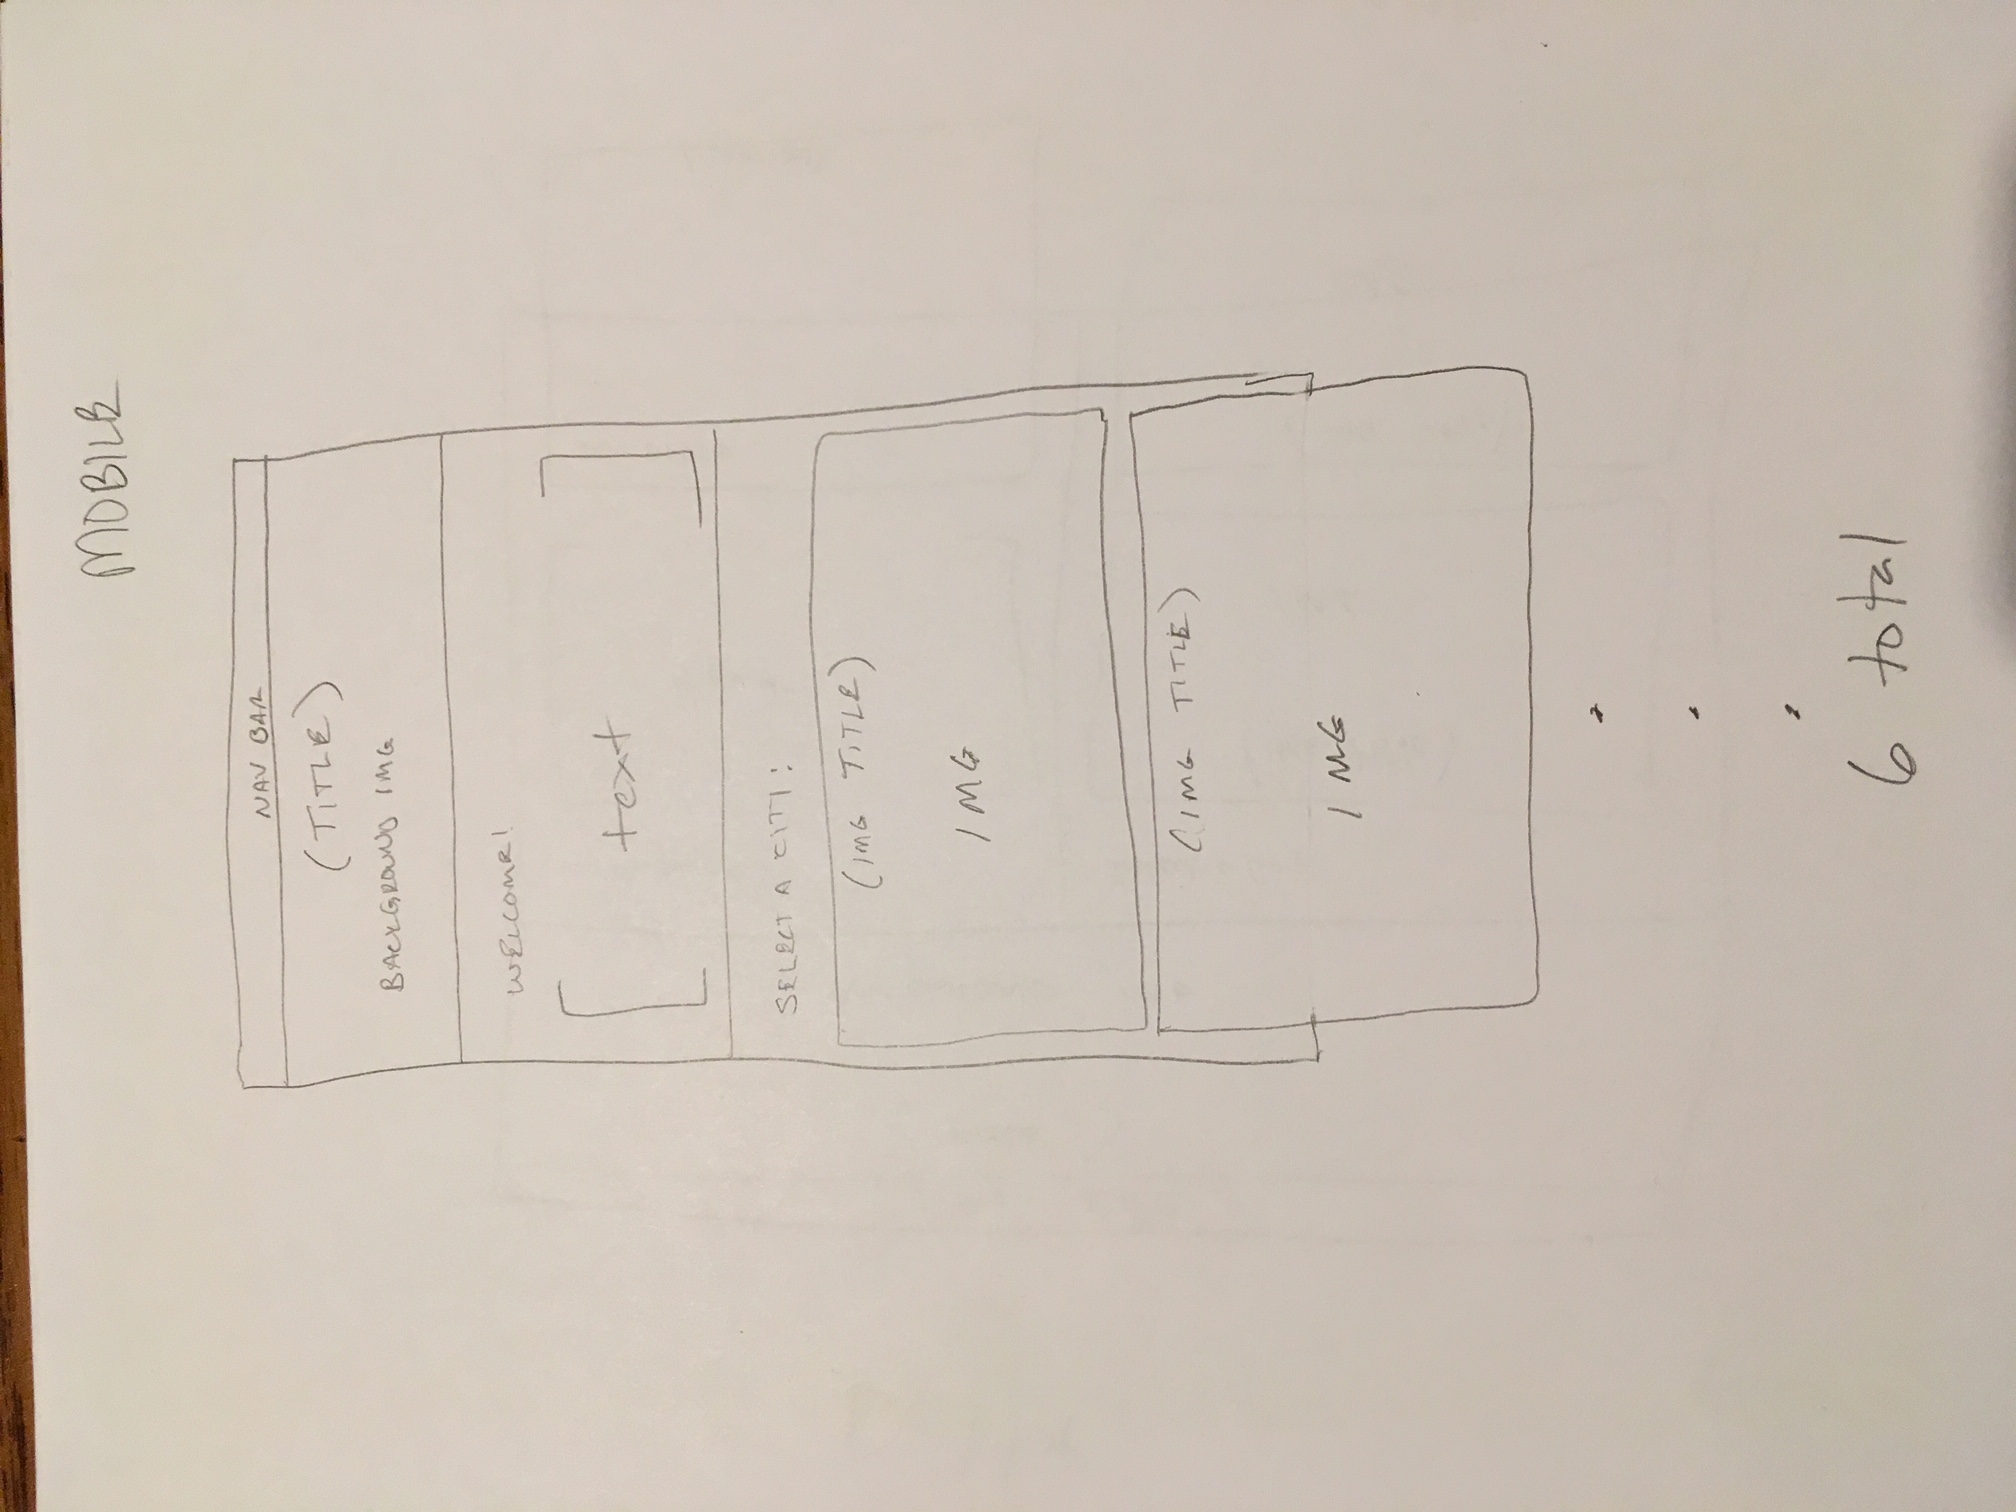 MOBILE
NAV BAR
(TITLE)
BACKGROUND IMG
WELCOME!
text
SELECT A CITY:
(IMG TITLE)
IMG
(IMG TITLE)
IMG
6 total